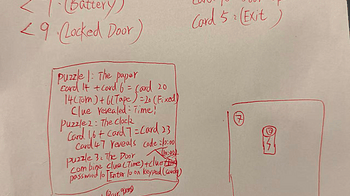 < 7 : (Battery)
< 9 : (Locked Door)
Card 5 : (Exit)
puzzle 1: The paper
card 14 + card 6 = card 20
14(Torn) + 6(Tape) = 20 (Fixed)
Clue revealed: Time!
puzzle 2: The clock
Card 16 + card 7 = Card 23
Card 47 reveals code: 10:00
puzzle 3: The Door
combine clue (Time) + clue
password to Enter 10 on keypad (card 9)
7